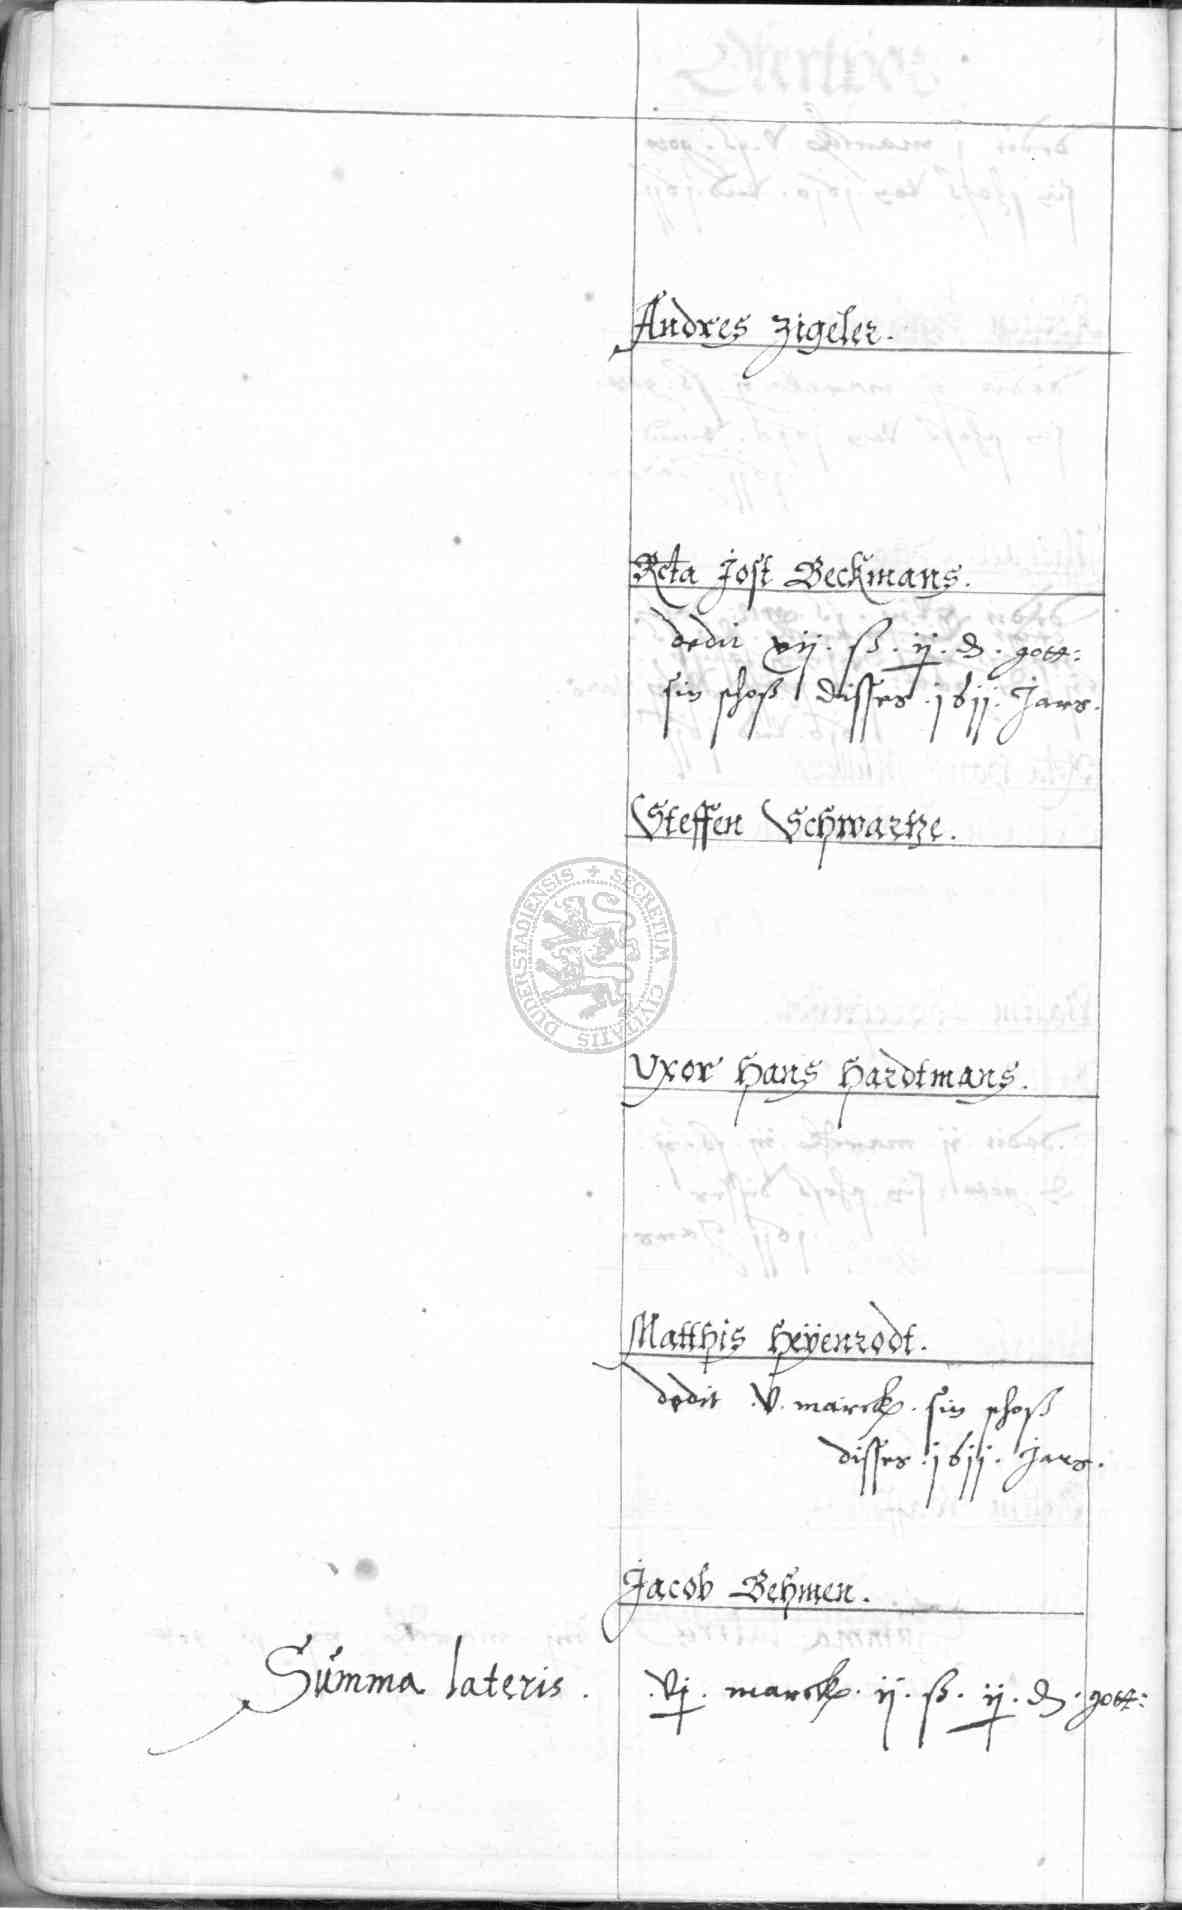 Andres Zigeler.
Rcta Jost Beckmans.
dedit vij. ß. ij. d. gott:
sin schoß disses .1611. Jars.
Steffen Schwartze.
SECRETUM CIVITATIS DUDERSTADIENSIS
Uxor Hans Hardtmans.
Matthis Heÿenrodt.
dedit .V. marck. sin schoß
disses .1611. Jars.
Jacob Behmen.
Summa lateris. .Vj. marck. ij. ß. ij. d. gott: